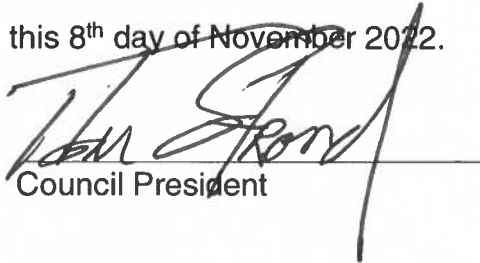 this 8th day of November 2022.
Tom Strand
Council President